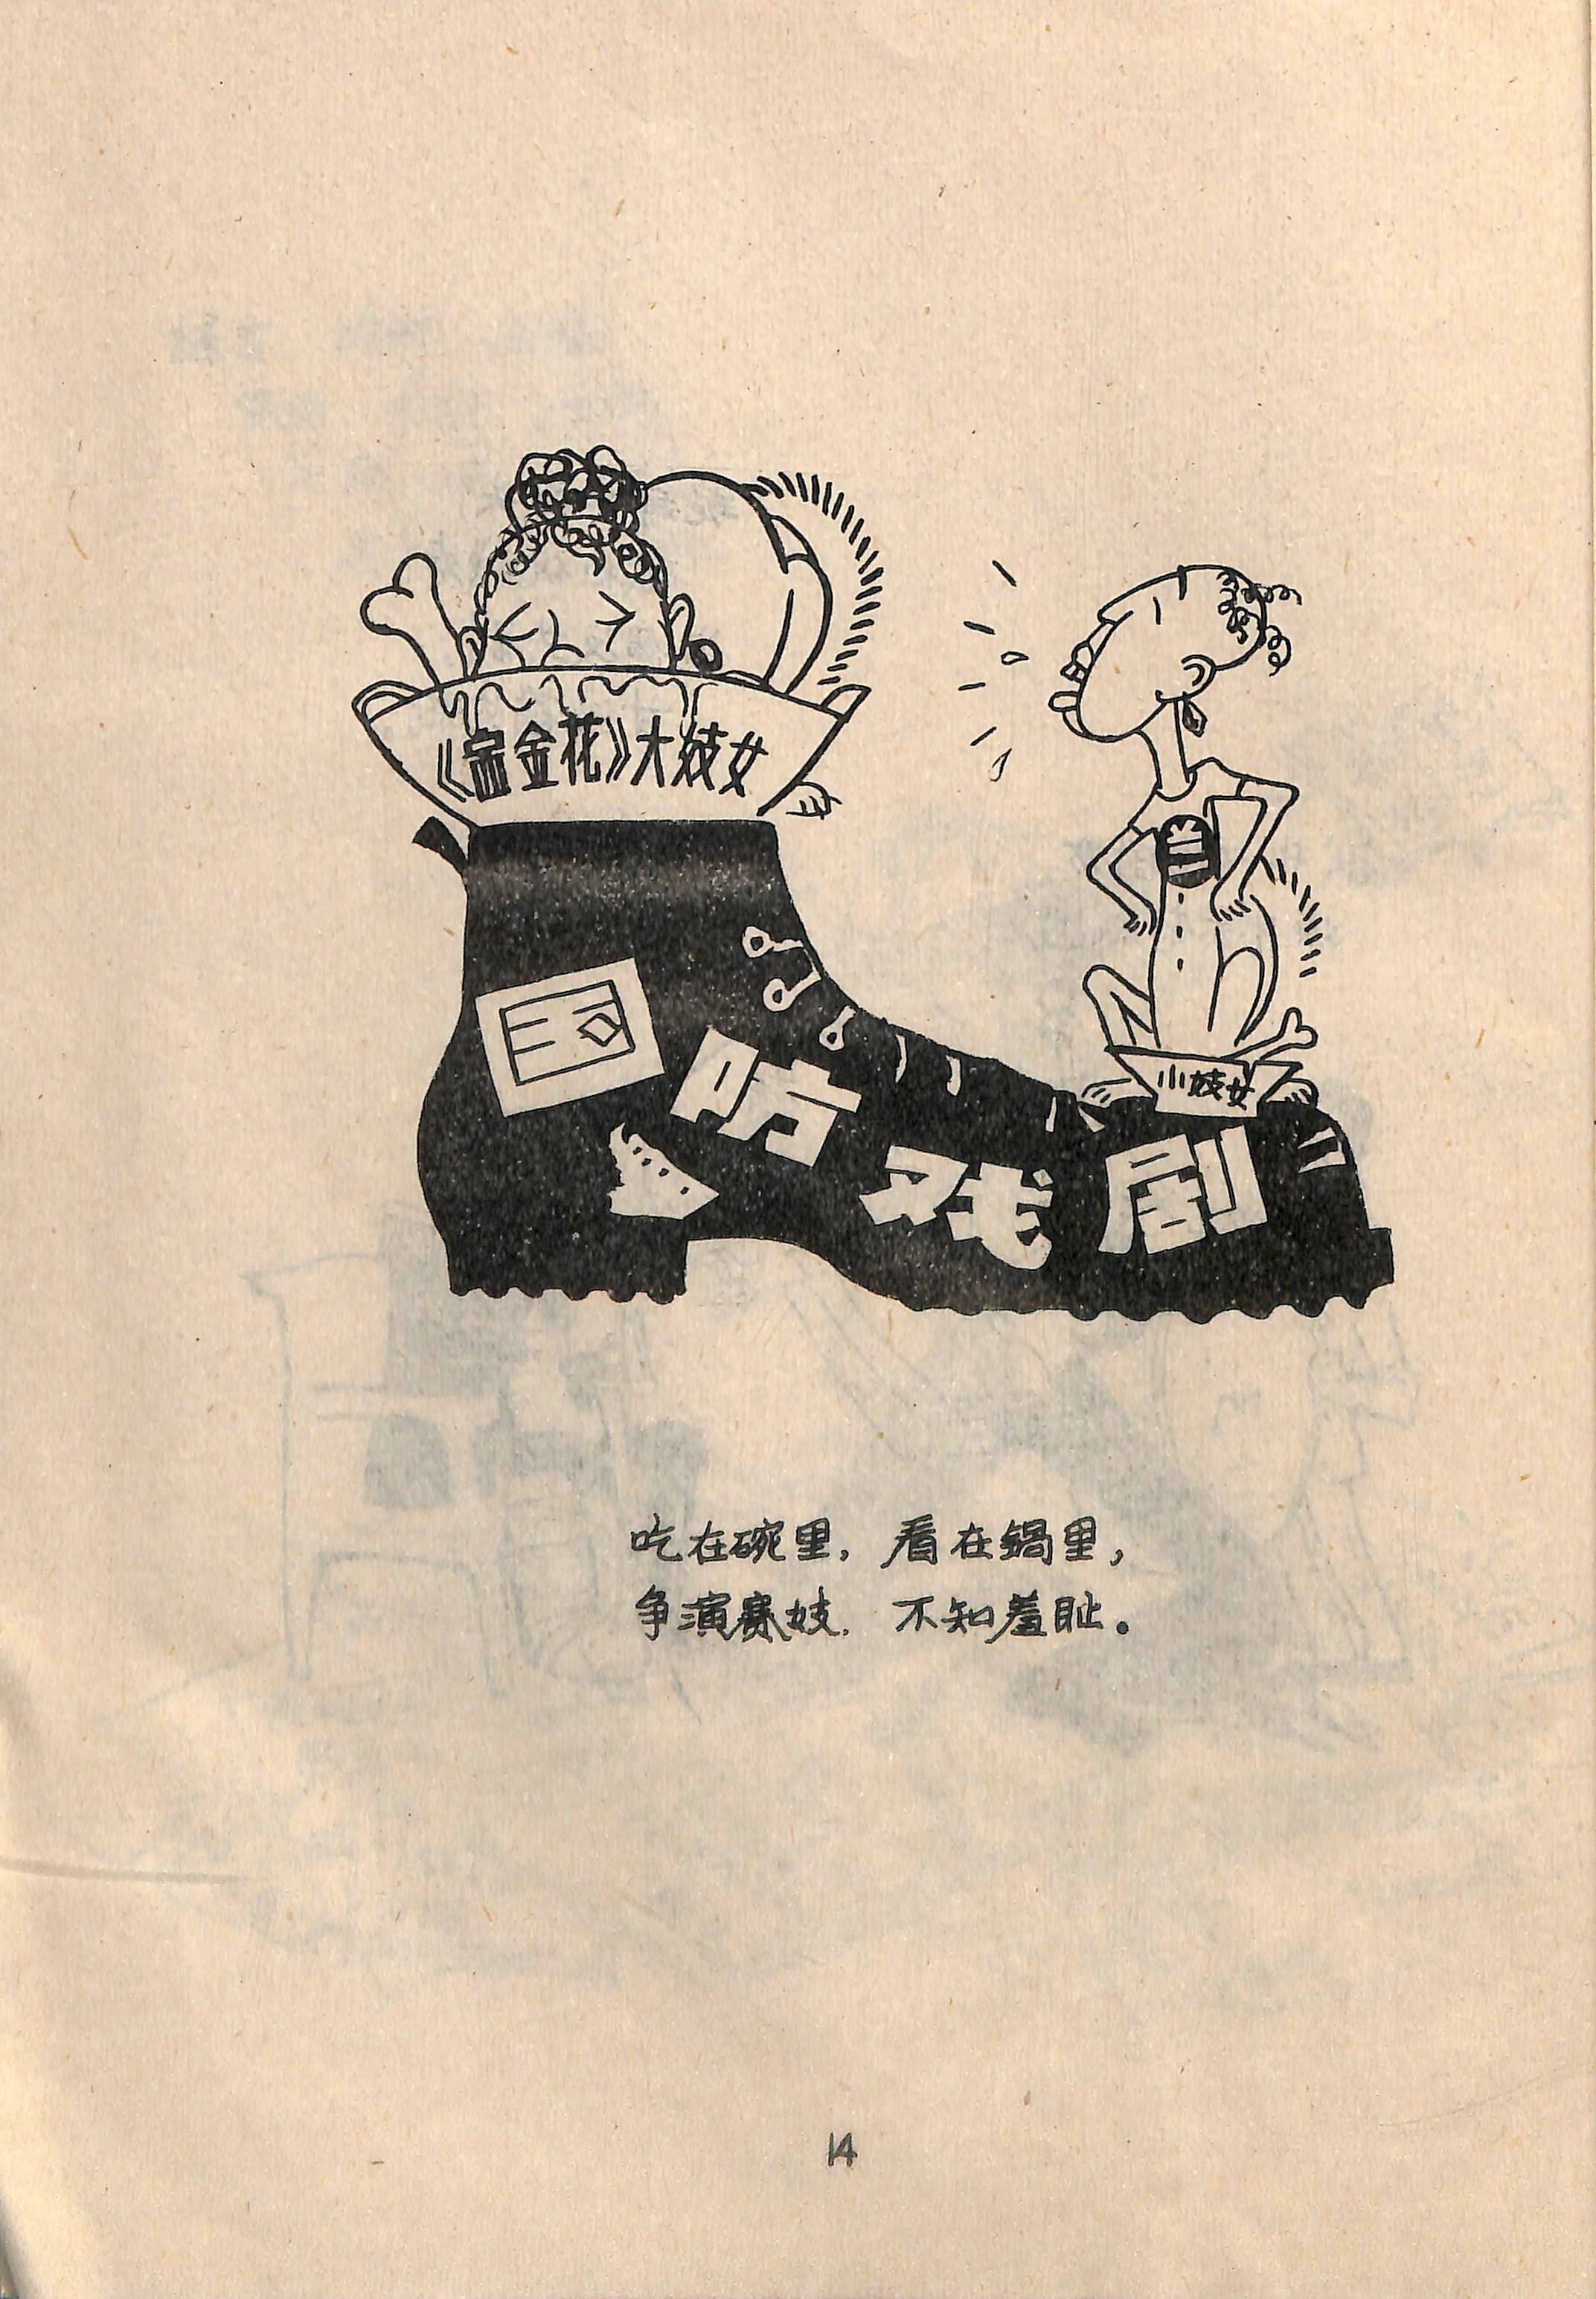 《赛金花》大妓女
小妓女
国防戏剧
吃在碗里，看在锅里，
争演赛妓，不知羞耻。
14